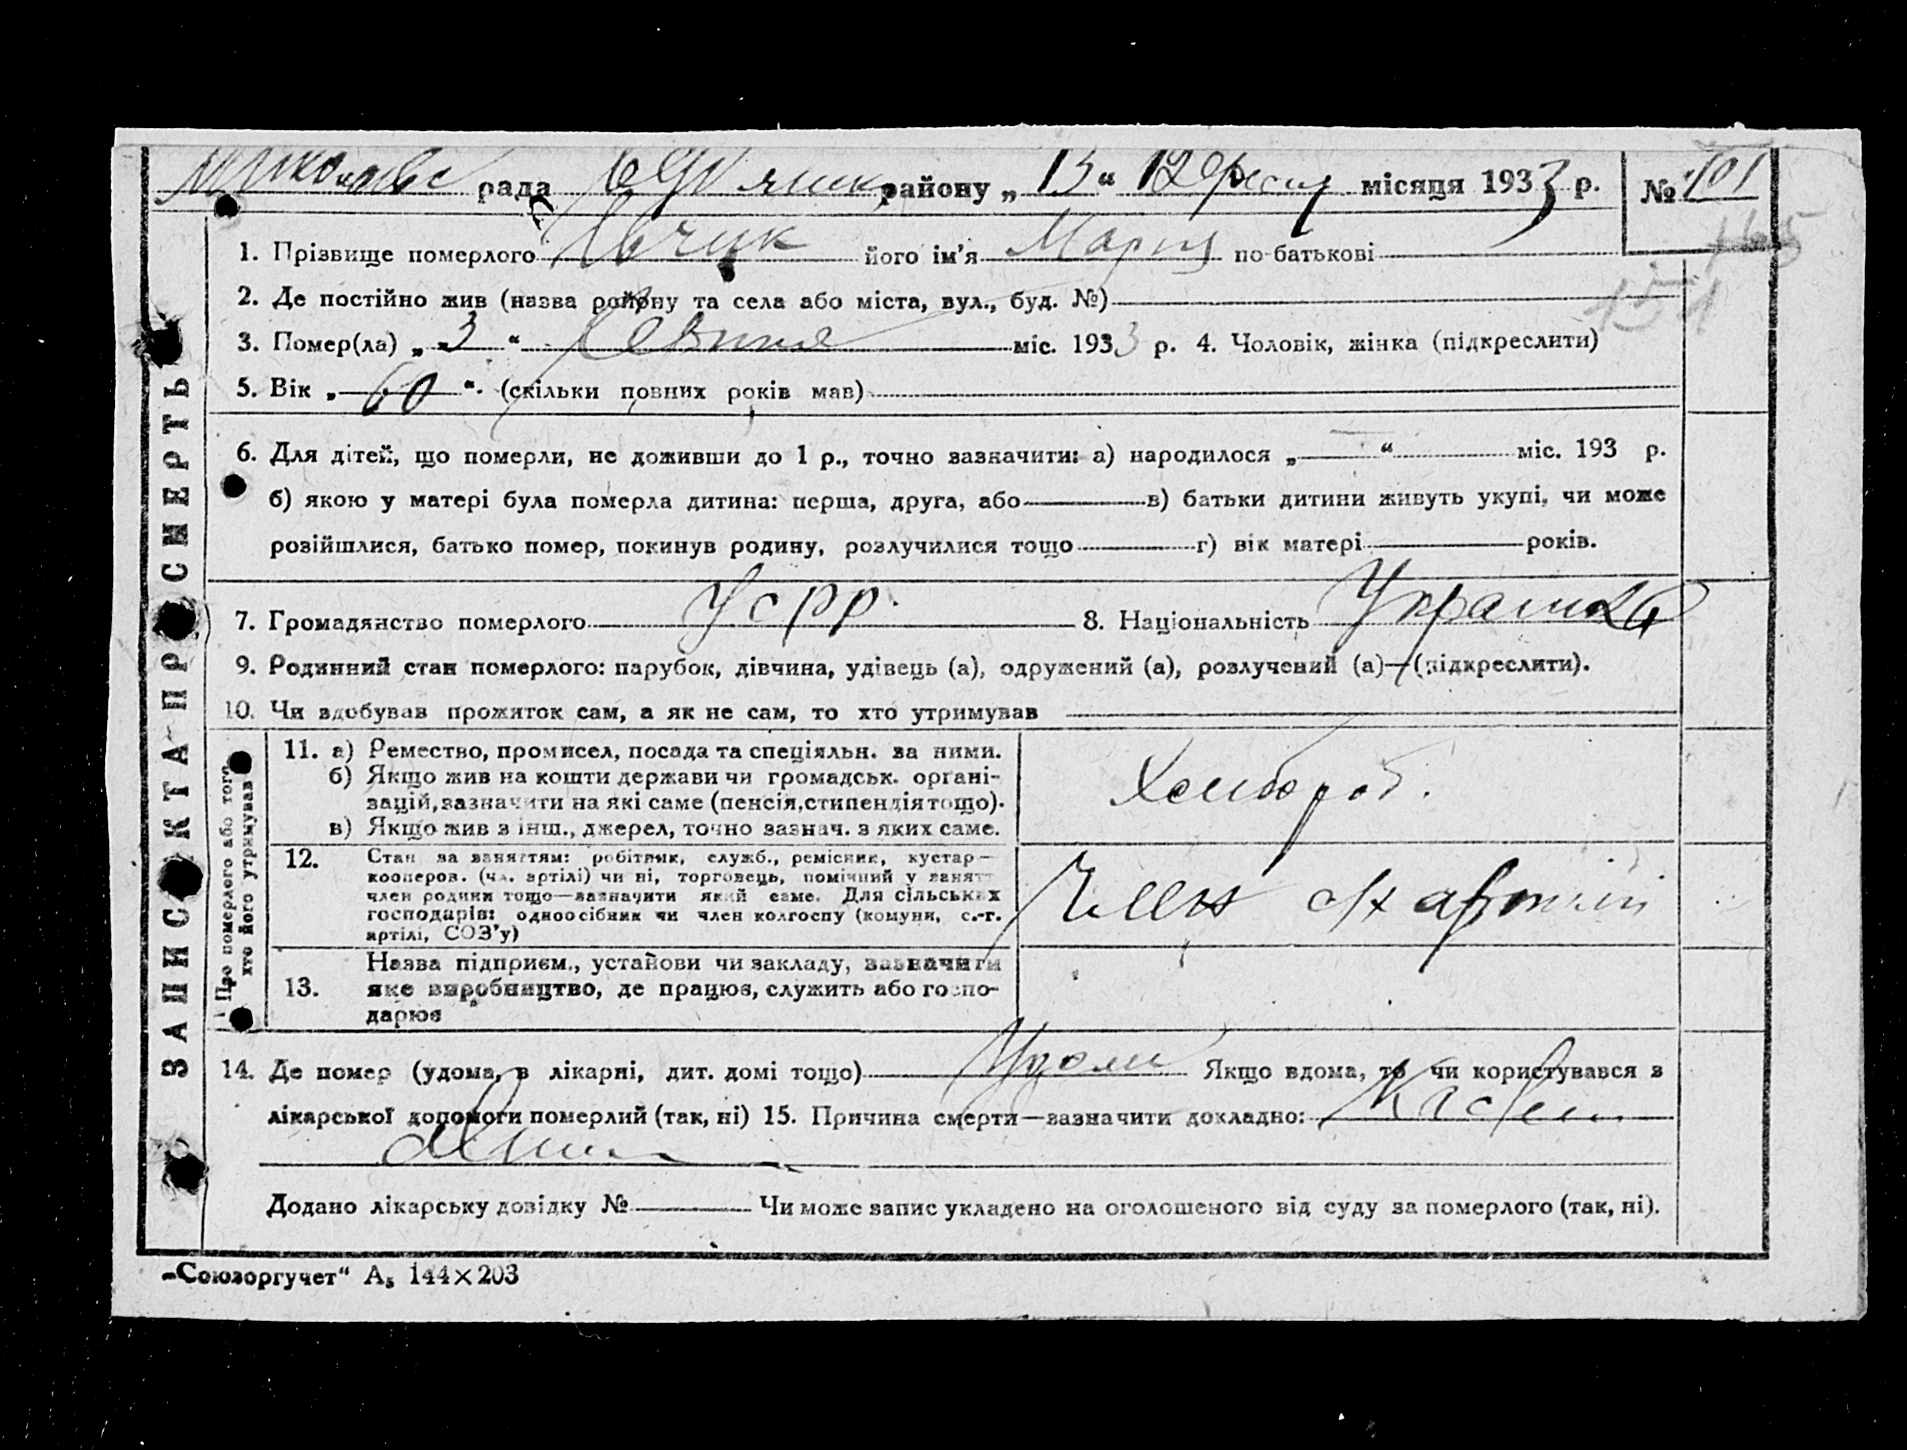 рада району „13“ Вересня місяця 1933 р. № 101
165
1. Прізвище померлого його ім'я Мария по-батькові
2. Де постійно жив (назва району та села або міста, вул., буд. №)
151
3. Помер(ла) „3“ міс. 1933 р. 4. Чоловік, жінка (підкреслити)
5. Вік „60“. (скільки повних років мав)
6. Для дітей, що померли, не доживши до 1 р., точно зазначити: а) народилося „ “ міс. 193 р.
б) якою у матері була померла дитина: перша, друга, або в) батьки дитини живуть укупі, чи може
розійшлися, батько помер, покинув родину, розлучилися тощо г) вік матері років.
7. Громадянство померлого УСРР. 8. Національність Украинка
9. Родинний стан померлого: парубок, дівчина, удівець (а), одружений (а), розлучений (а)—(підкреслити).
10. Чи здобував прожиток сам, а як не сам, то хто утримував
Про померлого або того, хто його утримував
11. а) Ремество, промисел, посада та спеціяльн. за ними.
б) Якщо жив на кошти держави чи громадськ. органі-
зацій, зазначити на які саме (пенсія, стипендія тощо).
в) Якщо жив з інш., джерел, точно зазнач. з яких саме.
Хлибороб.
12. Стан за заняттям: робітник, служб., ремісник, кустар—
кооперов. (чл. артілі) чи ні, торговець, помічний у занятт
член родини тощо—зазначити який саме. Для сільських
господарів: одноосібник чи член колгоспу (комуни, с.-г.
артілі, СОЗ'у)
Член с/х артили
13. Назва підприєм., установи чи закладу, зазначити
яке виробництво, де працює, служить або госпо-
дарює
14. Де помер (удома, в лікарні, дит. домі тощо) Удома Якщо вдома, то чи користувався з
лікарської допомоги померлий (так, ні) 15. Причина смерти—зазначити докладно:
Додано лікарську довідку № Чи може запис укладено на оголошеного від суду за померлого (так, ні).
ЗАПИСКА ПРО СМЕРТЬ
„Союзоргучет“ А₅ 144×203